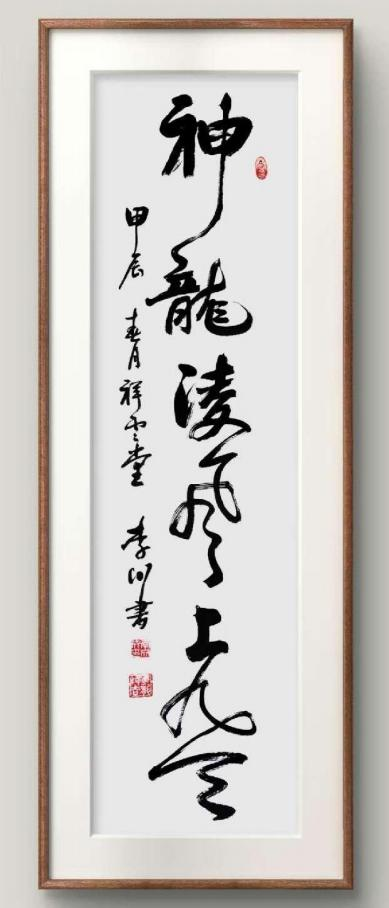 神龍凌風上九天
甲辰 春月 祥雲堂 李川書